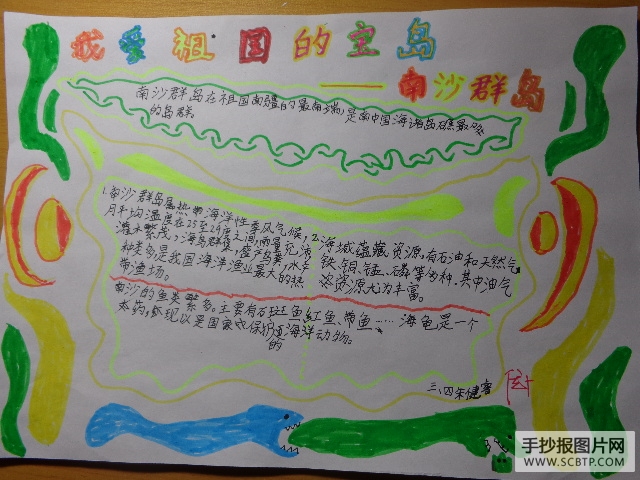 我爱祖国的宝岛
——南沙群岛
南沙群岛在祖国南疆的最南端,是南中国海诸岛礁最多
的岛群。
1.南沙群岛属热带海洋性季风气候,
月平均温度在25至29度之间,雨量充沛
灌木繁茂,海鸟群集,盛产鸟粪,水产
种类多是我国海洋渔业最大的热
带渔场。
2.海域蕴藏资源,有石油和天然气
铁、铜、锰、磷等多种.其中油气
资源尤为丰富。
南沙的鱼类繁多。主要有石斑鱼,红鱼,带鱼……海龟是一个
名药,
现以是国家
保护
海洋动物。
的
三、四朱健睿
手抄报图片网
WWW.SCBTP.COM